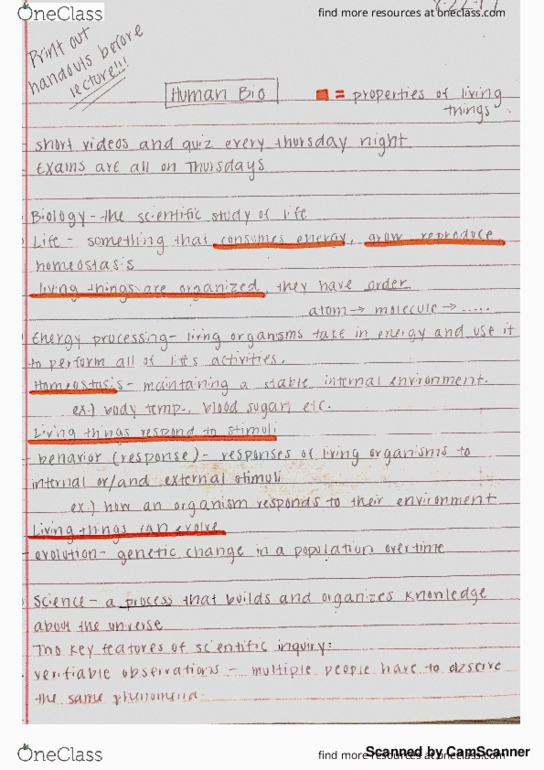 OneClass
find more resources at oneclass.com
8-22-17
Print out
handouts before
lecture!!!
Human Bio
= properties of living
things
short videos and quiz every thursday night
Exams are all on Thursdays
Biology - the scientific study of life
Life - something that consumes energy, grow reproduce
homeostasis
living things are organized, they have order
atom → molecule → .....
Energy processing - living organisms take in energy and use it
to perform all of life's activities.
Homeostasis - maintaining a stable internal environment.
ex.) body temp., blood sugar, etc.
Living things respond to stimuli
behavior (response) - responses of living organisms to
internal or/and external stimuli
ex.) how an organism responds to their environment
Living things can evolve
evolution - genetic change in a population overtime
Science - a process that builds and organizes knowledge
about the universe
Two key features of scientific inquiry:
verifiable observations - multiple people have to observe
the same phenomena.
OneClass
find more resources at oneclass.com
Scanned by CamScanner